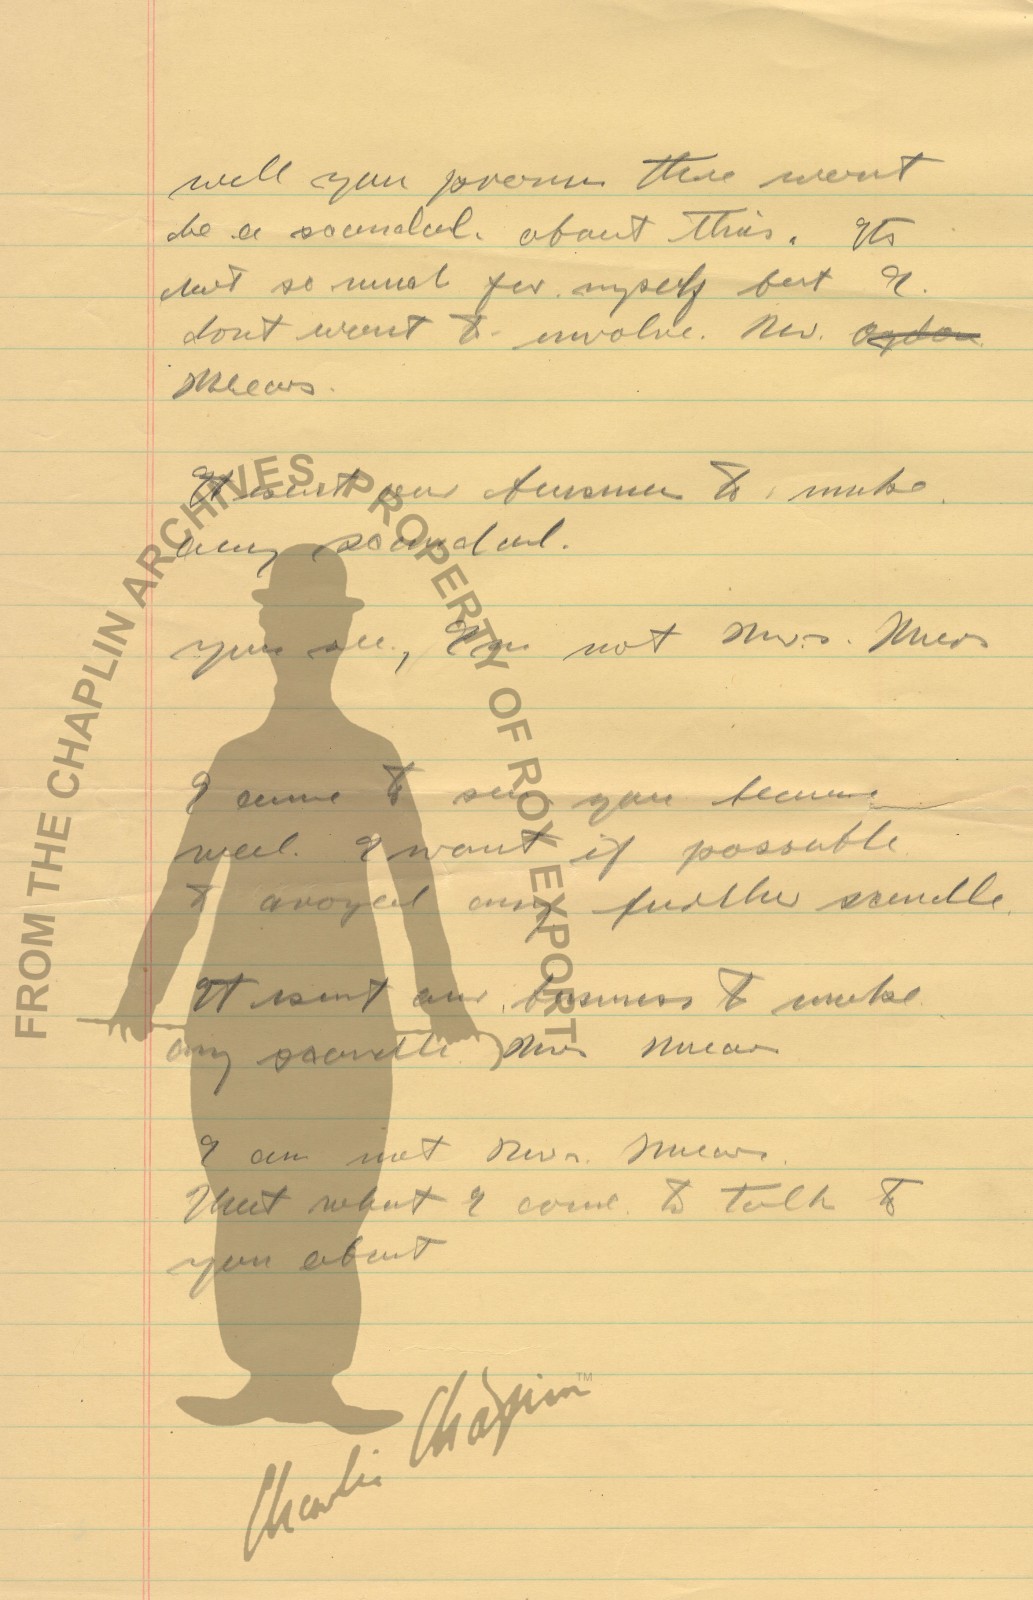 will you promise there wont
be a scandal. about this. Its
not so much for myself but I.
dont want to involve. Mr. Ogden
Mears.
It isent our buisness to make
any scandal.
you see, Im not Mrs. Mears
I came to see you because
well. I want if possable
to avoyed any further scandle.
It isent our business to make
any scandle Mrs Mears
I am not Mrs. Mears.
that what I come to talk to
you about
FROM THE CHAPLIN ARCHIVES PROPERTY OF ROY EXPORT
Charlie Chaplin™